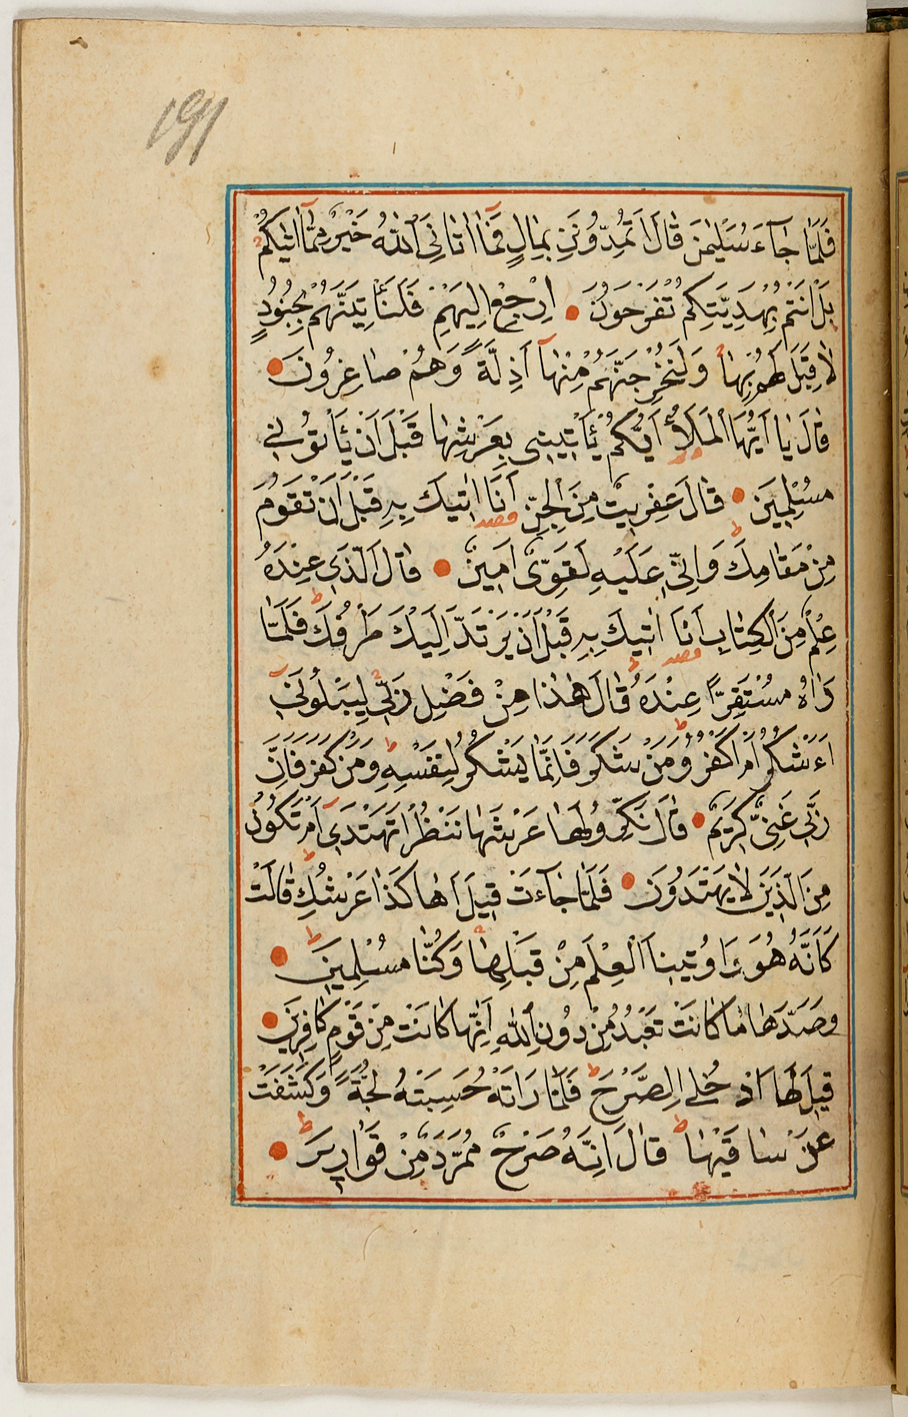 191
فَلَمَّا جَآءَ سُلَيْمٰنَ قَالَ اَتُمِدُّونَنِ بِمَالٍ فَمَٓا اٰتَانِىَ اللّٰهُ خَيْرٌ مِمَّٓا اٰتٰيكُمْ
بَلْ اَنْتُمْ بِهَدِيَّتِكُمْ تَفْرَحُونَ اِرْجِعْ اِلَيْهِمْ فَلَنَأْتِيَنَّهُمْ بِجُنُودٍ
لَا قِبَلَ لَهُمْ بِهَا وَلَنُخْرِجَنَّهُمْ مِنْهَآ اَذِلَّةً وَهُمْ صَاغِرُونَ
قَالَ يَا اَيُّهَا الْمَلَأُ اَيُّكُمْ يَأْتِينِى بِعَرْشِهَا قَبْلَ اَنْ يَأْتُونِى
مُسْلِمِينَ قَالَ عِفْرِيتٌ مِنَ الْجِنِّ اَنَا اٰتِيكَ بِهِ قَبْلَ اَنْ تَقُومَ
مِنْ مَقَامِكَ وَاِنِّى عَلَيْهِ لَقَوِىٌّ اَمِينٌ قَالَ الَّذِى عِنْدَهُ
عِلْمٌ مِنَ الْكِتَابِ اَنَا اٰتِيكَ بِهِ قَبْلَ اَنْ يَرْتَدَّ اِلَيْكَ طَرْفُكَ فَلَمَّا
رَاٰهُ مُسْتَقِرًّا عِنْدَهُ قَالَ هٰذَا مِنْ فَضْلِ رَبِّى لِيَبْلُوَنِى
ءَاَشْكُرُ اَمْ اَكْفُرُ وَمَنْ شَكَرَ فَاِنَّمَا يَشْكُرُ لِنَفْسِهِ وَمَنْ كَفَرَ فَاِنَّ
رَبِّى غَنِىٌّ كَرِيمٌ قَالَ نَكِّرُوا لَهَا عَرْشَهَا نَنْظُرْ اَتَهْتَدِى اَمْ تَكُونُ
مِنَ الَّذِينَ لَا يَهْتَدُونَ فَلَمَّا جَآءَتْ قِيلَ اَهٰكَذَا عَرْشُكِ قَالَتْ
كَاَنَّهُ هُوَ وَاُوتِينَا الْعِلْمَ مِنْ قَبْلِهَا وَكُنَّا مُسْلِمِينَ
وَصَدَّهَا مَا كَانَتْ تَعْبُدُ مِنْ دُونِ اللّٰهِ اِنَّهَا كَانَتْ مِنْ قَوْمٍ كَافِرِينَ
قِيلَ لَهَا ادْخُلِى الصَّرْحَ فَلَمَّا رَاَتْهُ حَسِبَتْهُ لُجَّةً وَكَشَفَتْ
عَنْ سَاقَيْهَا قَالَ اِنَّهُ صَرْحٌ مُمَرَّدٌ مِنْ قَوَارِيرَ